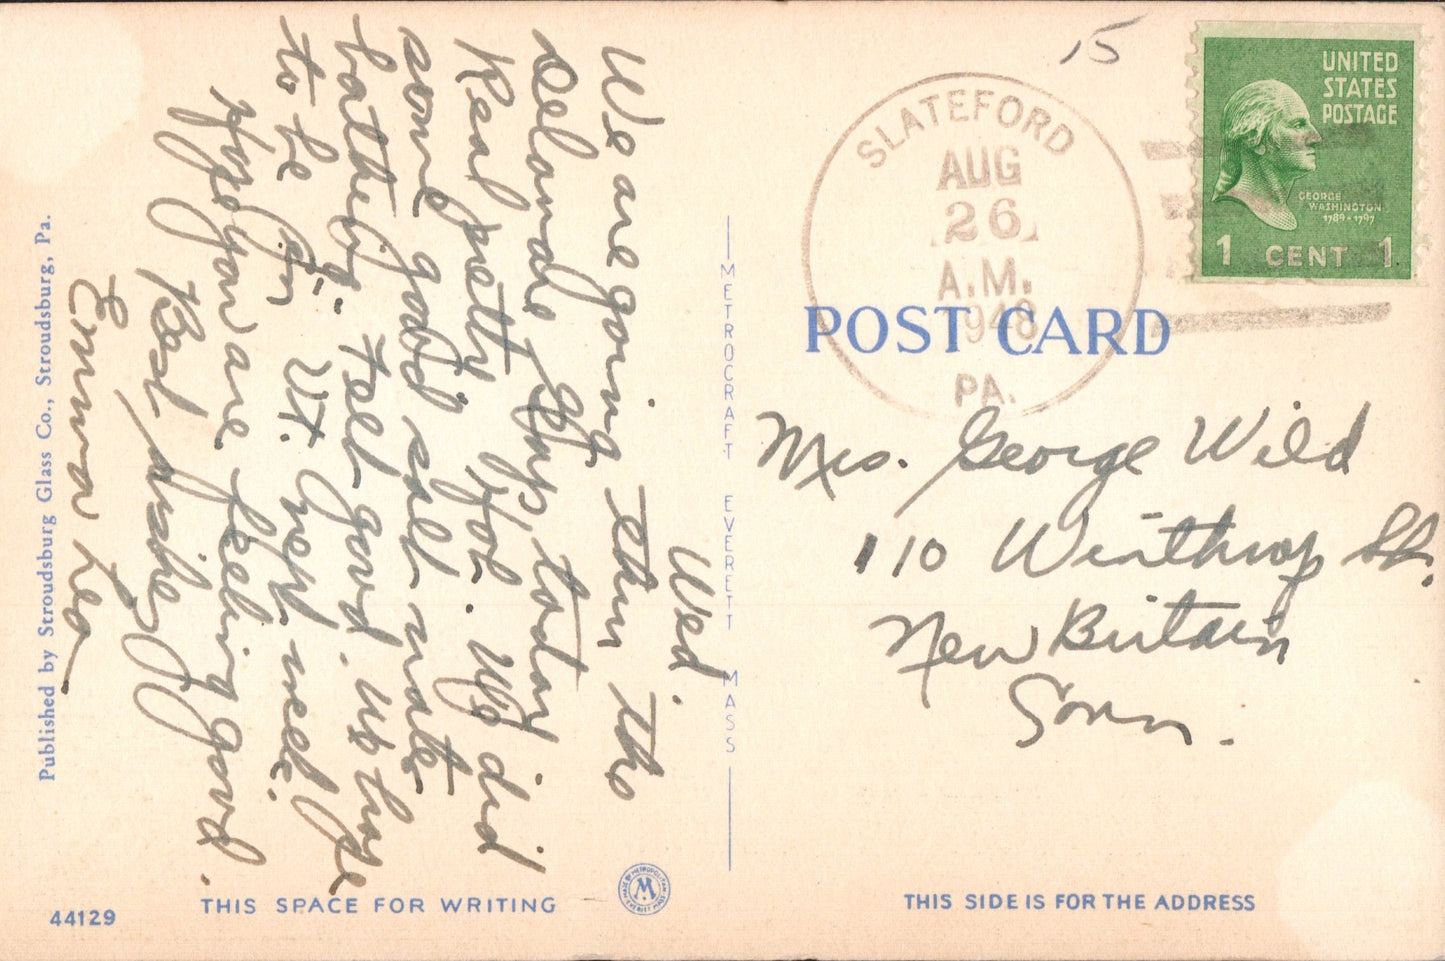 15
SLATEFORD
AUG
26
A.M.
1948
PA.
UNITED
STATES
POSTAGE
GEORGE
WASHINGTON
1789-1797
1 CENT 1
POST CARD
Mrs. George Wild
110 Winthrop St.
New Britain
Conn.
THIS SIDE IS FOR THE ADDRESS
Wed.
We are going thru the
Delaware Gap today
Real pretty for. We did
some good salt water
bathing. Felt good. We hope
to be in Vt. next week.
Hope you are feeling good.
Best wishes
Emma Leo
METROCRAFT EVERETT MASS
Published by Stroudsburg Glass Co., Stroudsburg, Pa.
44129
THIS SPACE FOR WRITING
MADE BY METROPOLITAN
M
EVERETT MASS